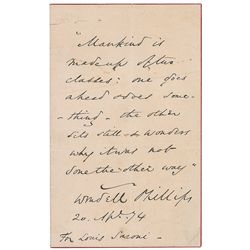 "Mankind is
made up of two
classes: one goes
ahead & does some-
thing - the other
sits still & wonders
why it was not
done the other way"
Wendell Phillips
20 Apl. 74
For Louis Saroni -